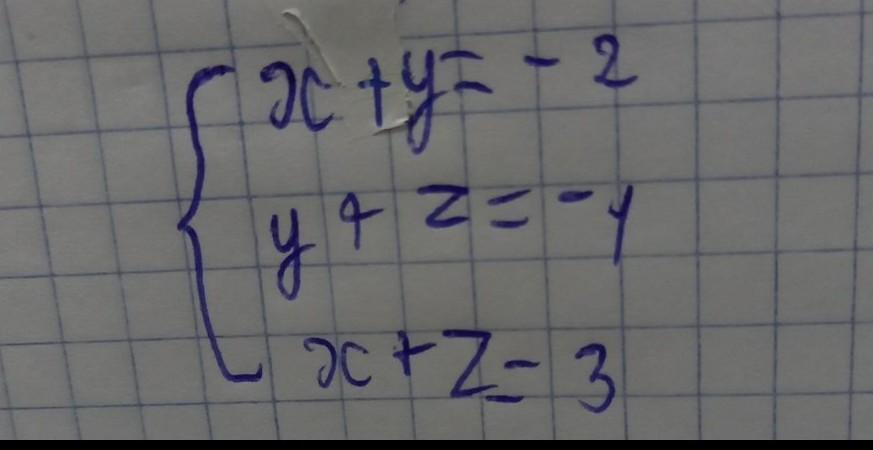 x + y = - 2
y + z = - 1
x + z = 3